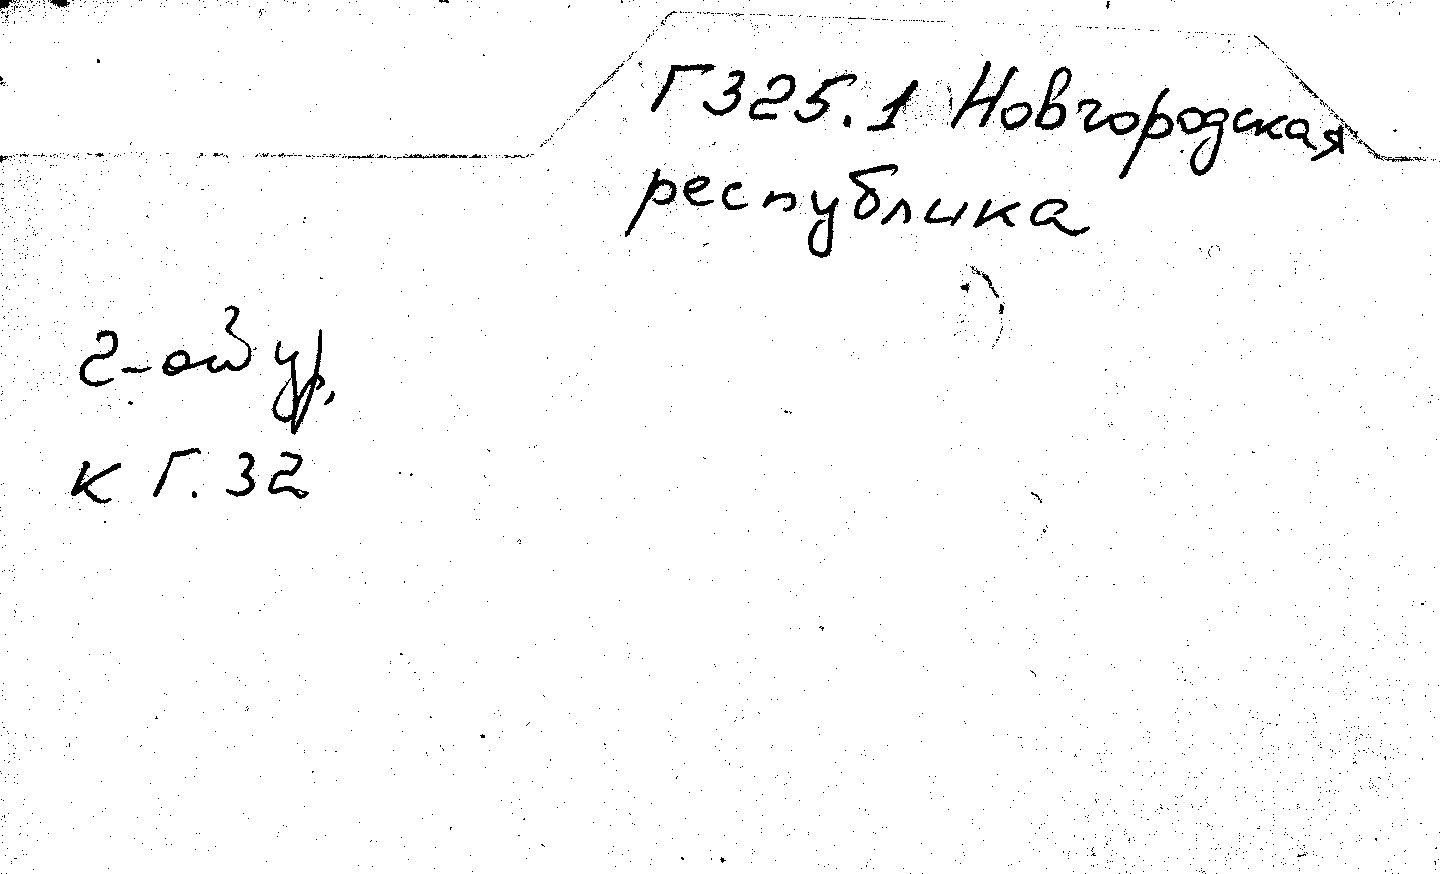 Г325.1 Новгородская
республика
2-ой ур.
к Г. 32